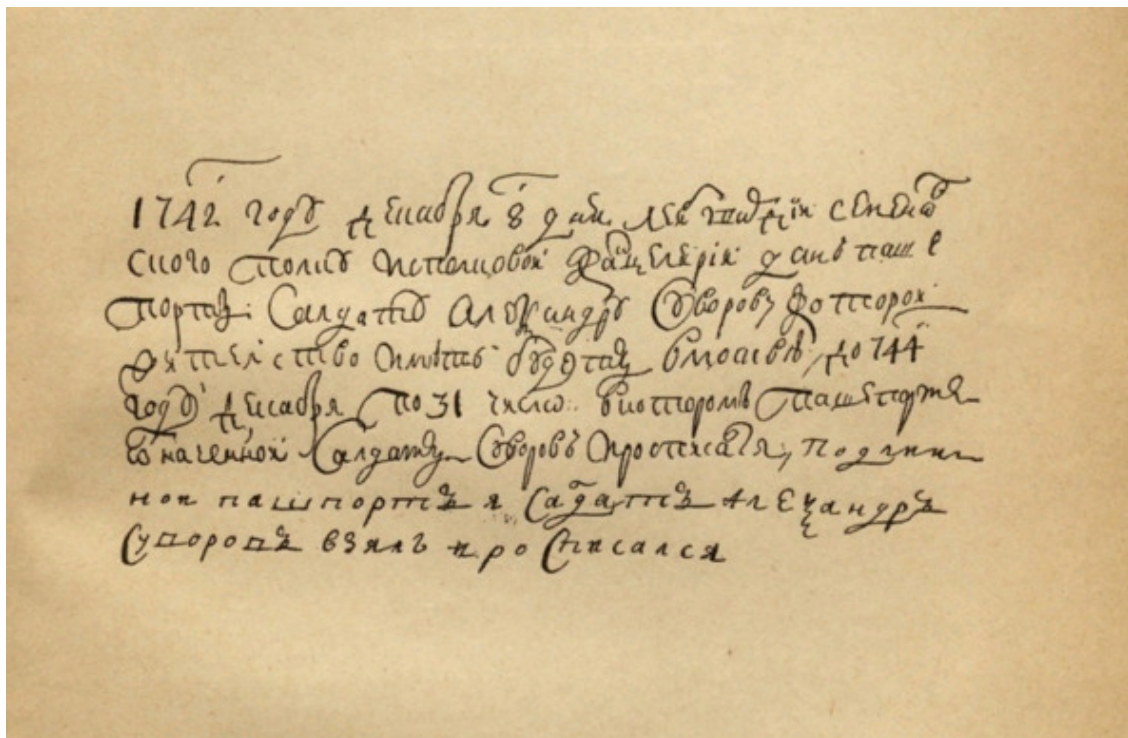 1742 году декабря 8 дня лейбгвардіи семенов
ского полку ис полковой канцеляріи данъ паше
портъ Салдату Александру Суворову
жительство иметь будетъ в москвѣ до 1744
году декабря по 31 число в которомъ пашепорте
означенной Салдатъ Суворовъ и росписался, подлин
ной пашпортъ я Салдатъ Александръ
Суворовъ взялъ и ро Списался